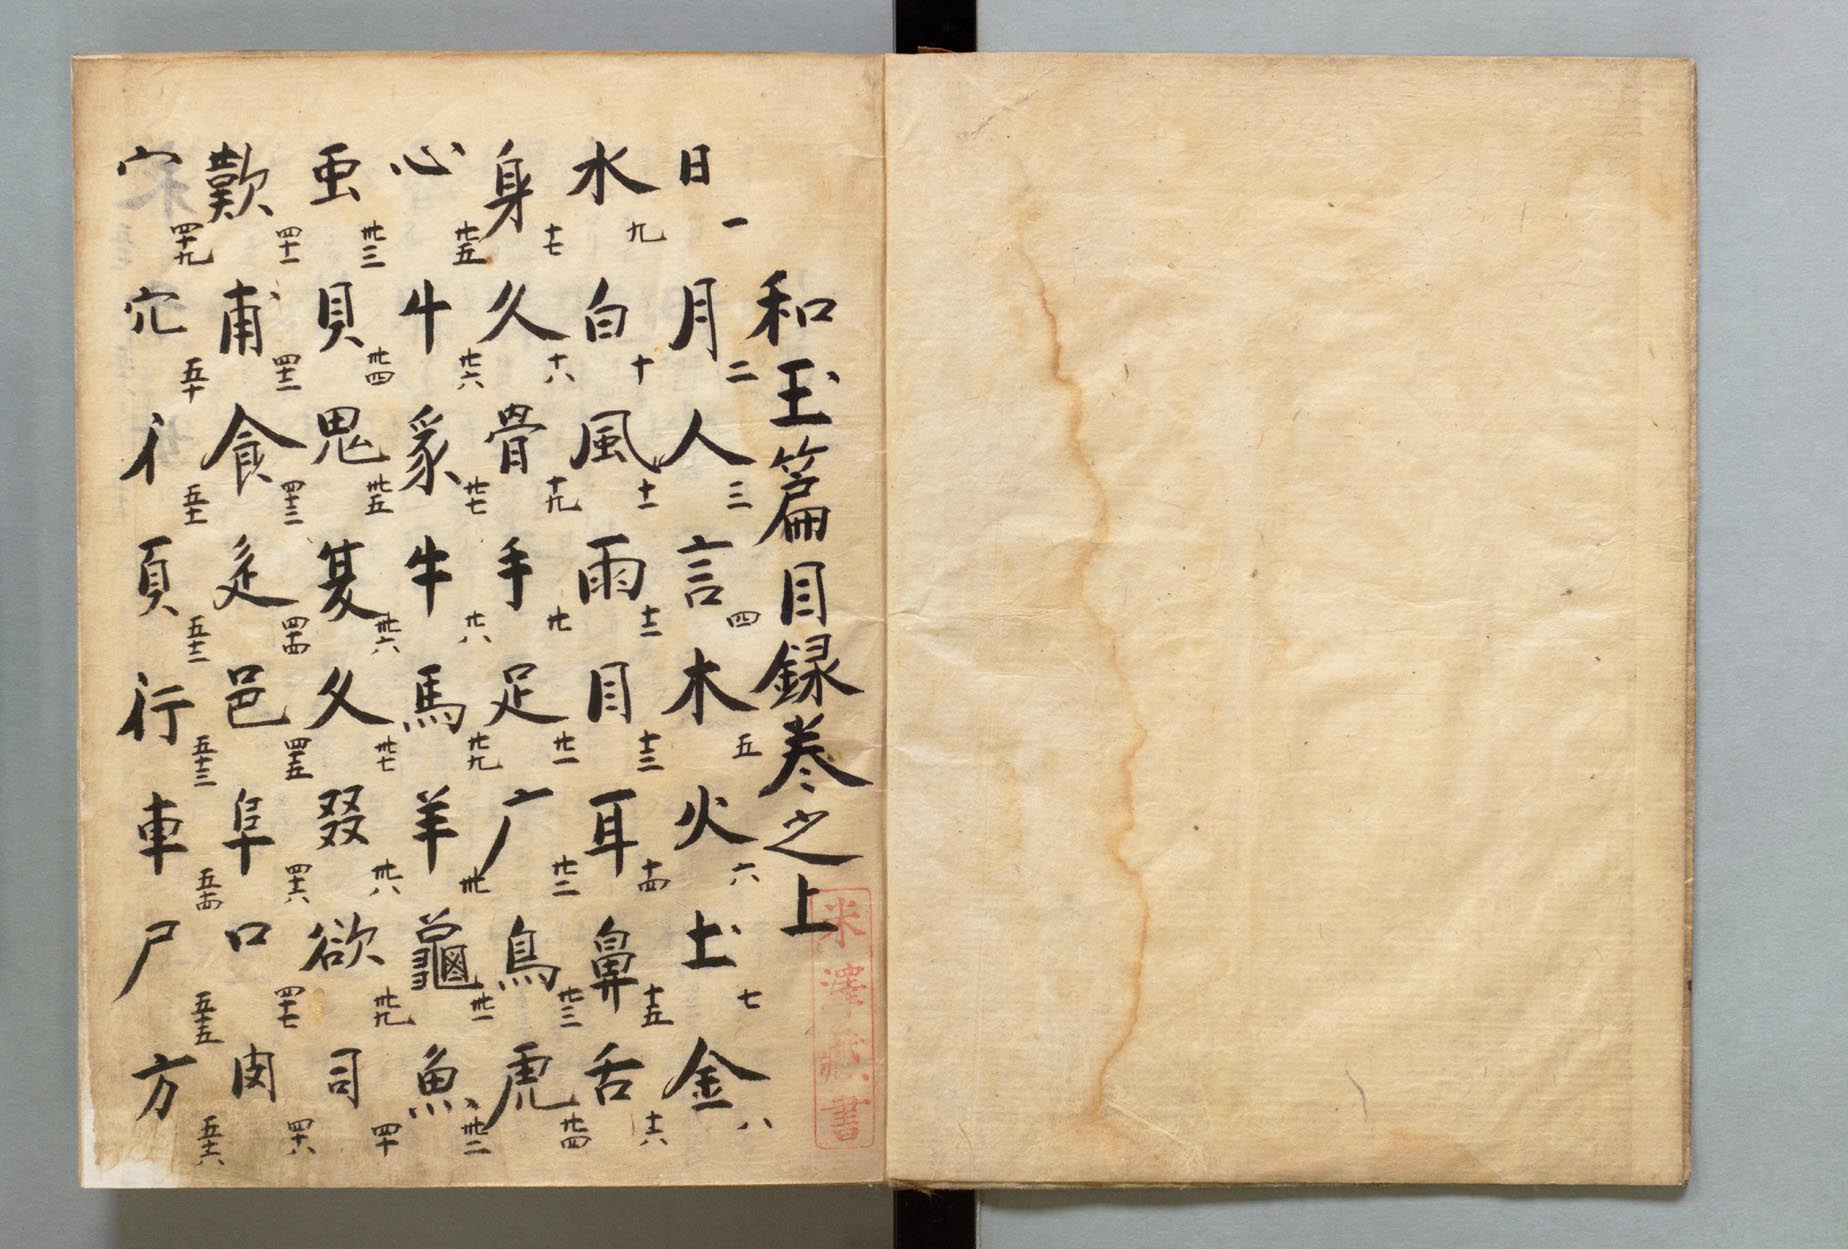 和玉篇目録巻之上
日一 月二 人三 言四 木五 火六 圡七 金八
水九 白十 風十一 雨十二 目十三 耳十四 鼻十五 舌十六
身十七 久十八 骨十九 手廿 足廿一 广廿二 鳥廿三 虎廿四
心廿五 廿六 豕廿七 牛廿八 馬廿九 羊卅 龜卅一 魚卅二
䖝卅三 貝卅四 鬼卅五 卅六 夂卅七 叕卅八 欲卅九 司四十
歎四十一 甫四十二 食四十三 辵四十四 邑四十五 阜四十六 口四十七 肉四十八
宀四十九 穴五十 彳五十一 頁五十二 行五十三 車五十四 尸五十五 方五十六
米澤蔵書